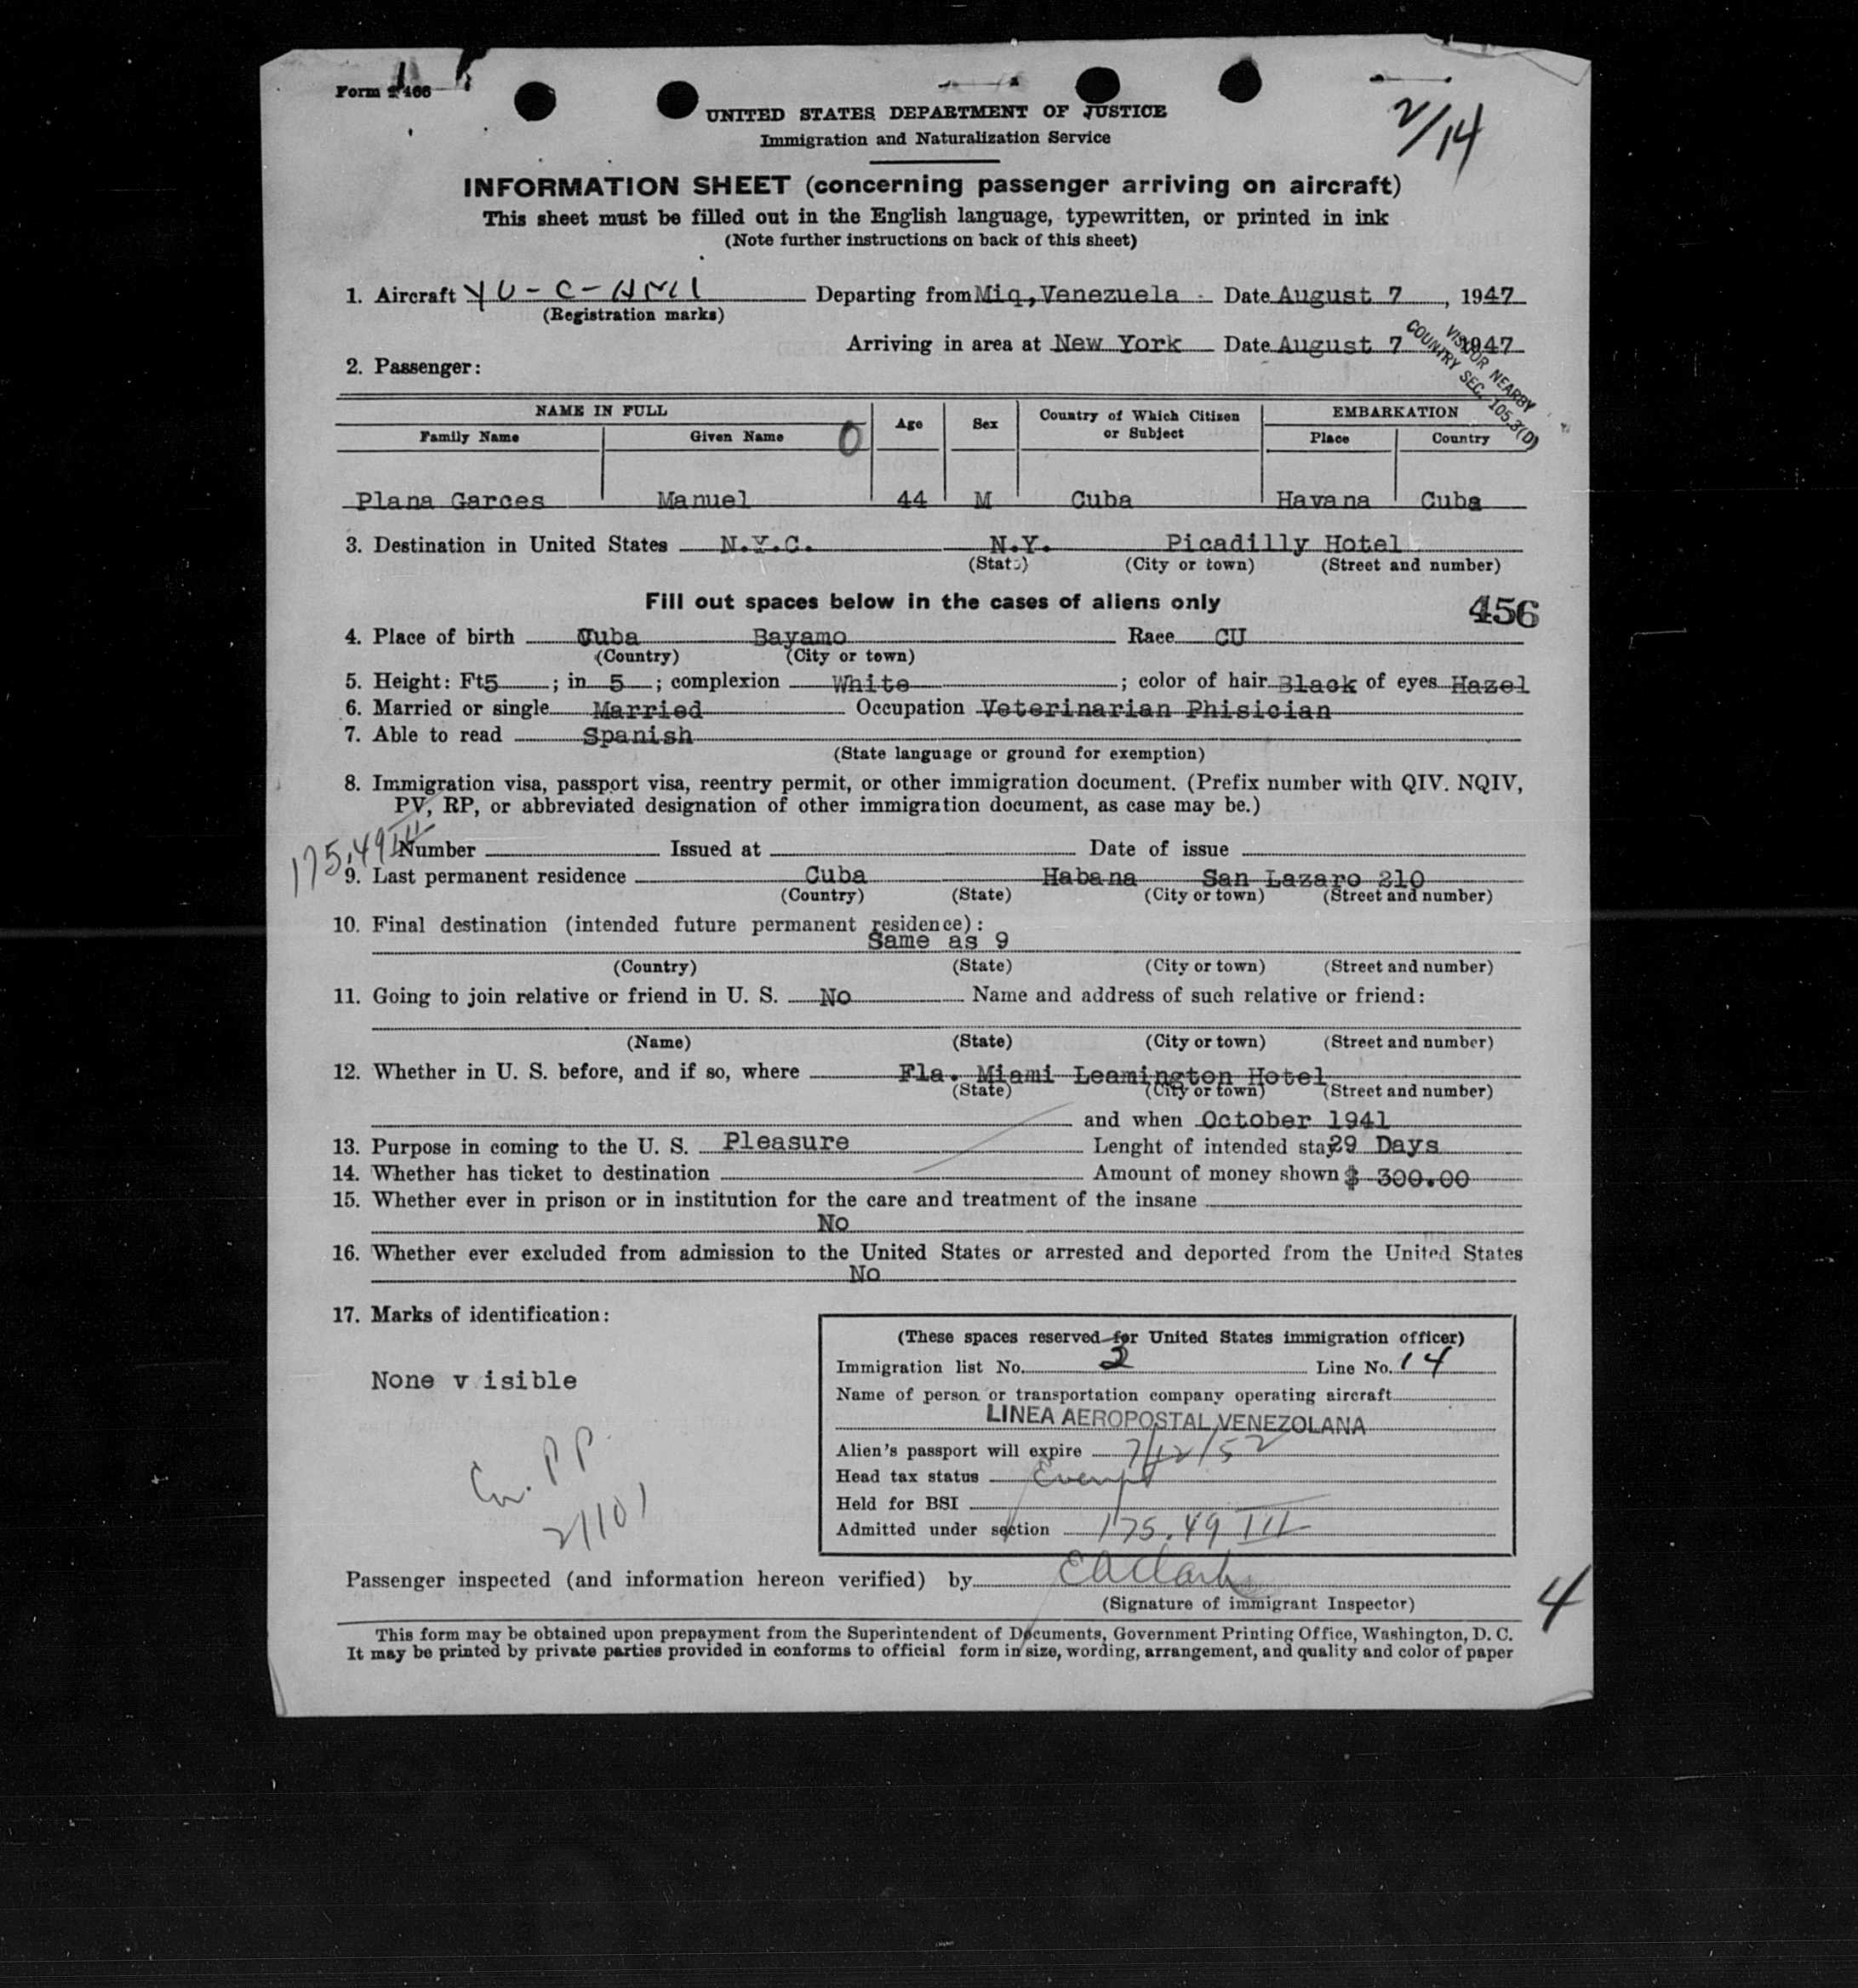 Form I 466
2/14
UNITED STATES DEPARTMENT OF JUSTICE
Immigration and Naturalization Service
INFORMATION SHEET (concerning passenger arriving on aircraft)
This sheet must be filled out in the English language, typewritten, or printed in ink
(Note further instructions on back of this sheet)
1. Aircraft Departing from Miq, Venezuela Date August 7, 1947
(Registration marks)
Arriving in area at New York Date August 7 1947
VISITOR NEARBY
COUNTRY SEC. 105.3(D)
2. Passenger:
NAME IN FULL Age Sex Country of Which Citizen or Subject EMBARKATION
Family Name Given Name 0 Place Country
Plana Garces Manuel 44 M Cuba Havana Cuba
3. Destination in United States N.Y.C. N.Y. Picadilly Hotel
(State) (City or town) (Street and number)
Fill out spaces below in the cases of aliens only 456
4. Place of birth Cuba Bayamo Race CU
(Country) (City or town)
5. Height: Ft 5; in 5; complexion White; color of hair Black of eyes Hazel
6. Married or single Married Occupation Veterinarian Phisician
7. Able to read Spanish
(State language or ground for exemption)
8. Immigration visa, passport visa, reentry permit, or other immigration document. (Prefix number with QIV. NQIV,
PV, RP, or abbreviated designation of other immigration document, as case may be.)
175.49 III Number Issued at Date of issue
9. Last permanent residence Cuba Habana San Lazaro 210
(Country) (State) (City or town) (Street and number)
10. Final destination (intended future permanent residence):
Same as 9
(Country) (State) (City or town) (Street and number)
11. Going to join relative or friend in U. S. No Name and address of such relative or friend:
(Name) (State) (City or town) (Street and number)
12. Whether in U. S. before, and if so, where Fla. Miami Leamington Hotel
(State) (City or town) (Street and number)
and when October 1941
13. Purpose in coming to the U. S. Pleasure Lenght of intended stay 29 Days
14. Whether has ticket to destination Amount of money shown $ 300.00
15. Whether ever in prison or in institution for the care and treatment of the insane
No
16. Whether ever excluded from admission to the United States or arrested and deported from the United States
No
17. Marks of identification:
None v isible
Cu. PP
21101
(These spaces reserved for United States immigration officer)
Immigration list No. 2 Line No. 14
Name of person or transportation company operating aircraft
LINEA AEROPOSTAL VENEZOLANA
Alien's passport will expire 7/12/52
Head tax status Exempt
Held for BSI
Admitted under section 175.49 III
Passenger inspected (and information hereon verified) by EAClark
(Signature of immigrant Inspector)
4
This form may be obtained upon prepayment from the Superintendent of Documents, Government Printing Office, Washington, D. C.
It may be printed by private parties provided in conforms to official form in size, wording, arrangement, and quality and color of paper